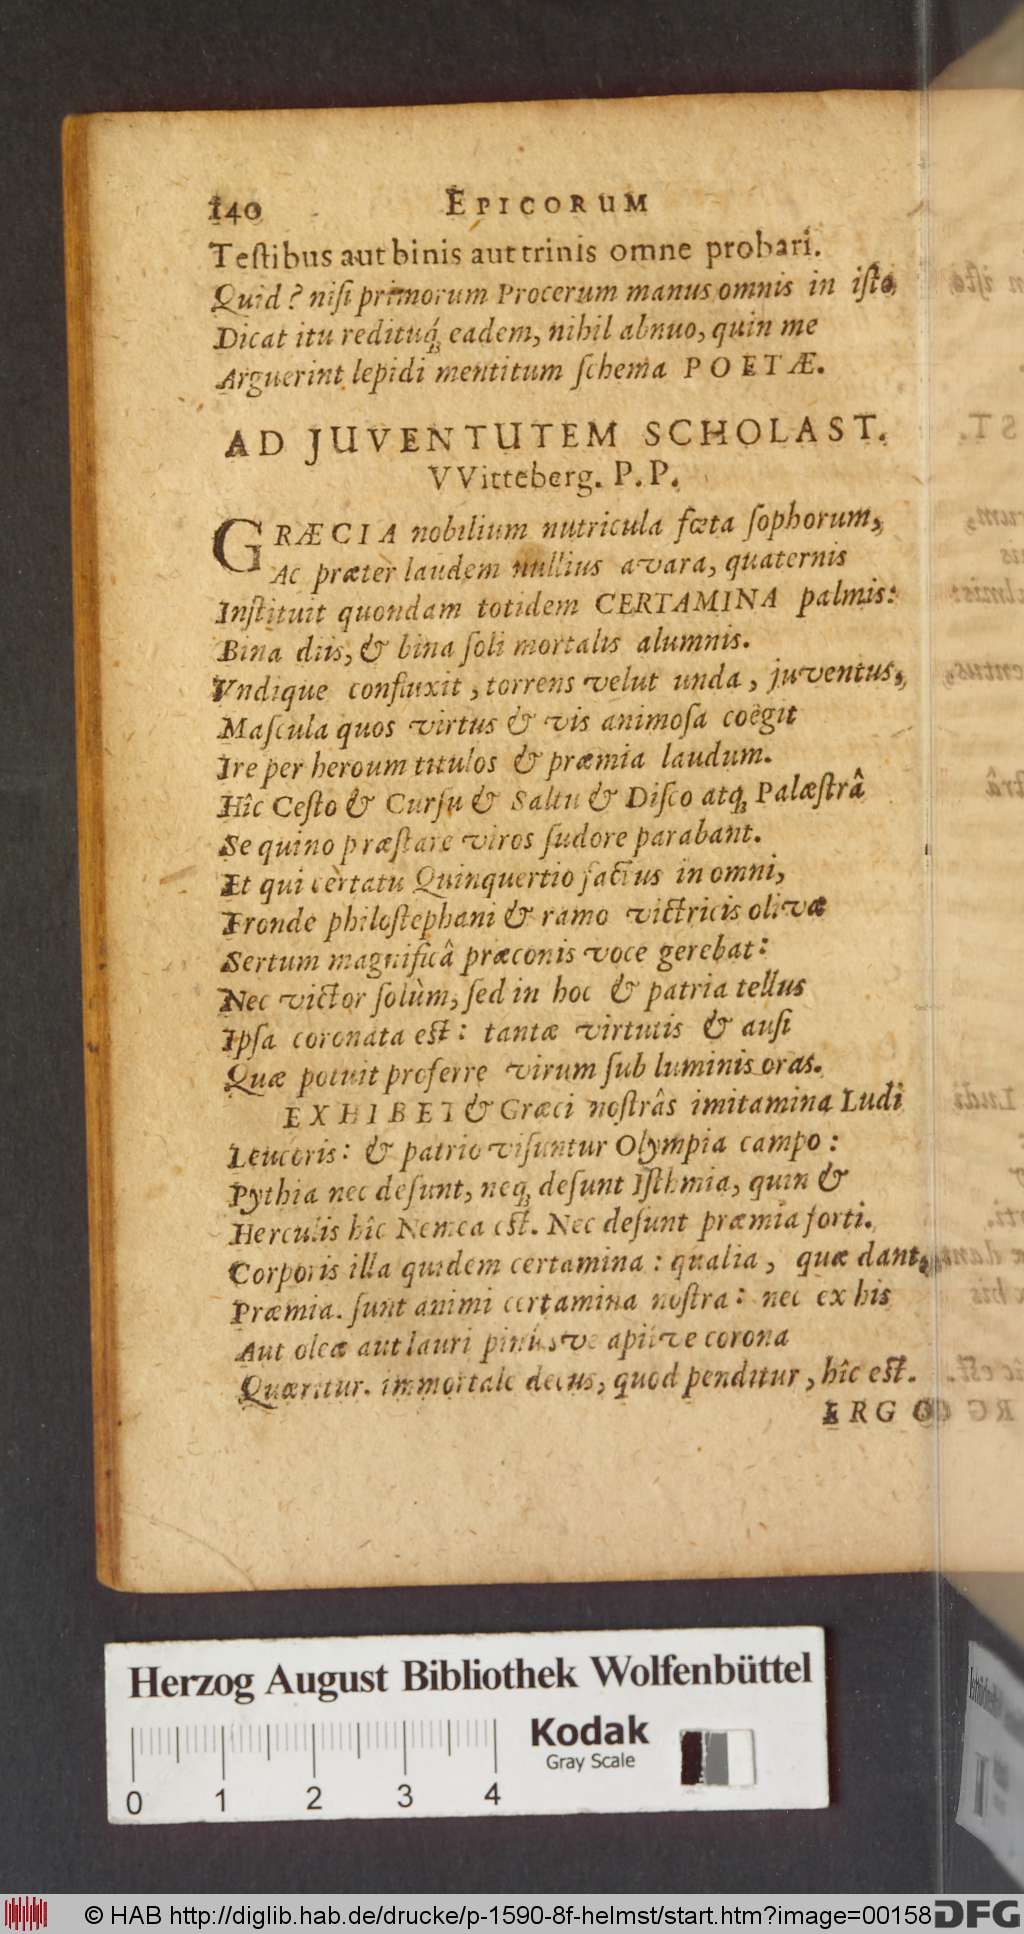 140 EPICORUM
Teſtibus aut binis aut trinis omne probari.
Quid? niſi primorum Procerum manus omnis in iſto,
Dicat itu redituq́ꝫ eadem, nihil abnuo, quin me
Arguerint lepidi mentitum ſchema POETÆ.
AD JUVENTUTEM SCHOLAST.
VVitteberg. P. P.
GRÆCIA nobilium nutricula fœta ſophorum,
Ac præter laudem nullius avara, quaternis
Inſtituit quondam totidem CERTAMINA palmis:
Bina diis, & bina ſoli mortalis alumnis.
Vndique confluxit, torrens velut unda, juventus,
Maſcula quos virtus & vis animoſa coëgit
Ire per heroum titulos & præmia laudum.
Hîc Ceſto & Curſu & Saltu & Diſco atqꝫ Palæſtrâ
Se quino præſtare viros ſudore parabant.
Et qui certatu Quinquertio factus in omni,
Fronde philoſtephani & ramo victricis olivæ
Sertum magnificâ præconis voce gerebat:
Nec victor ſolùm, ſed in hoc & patria tellus
Ipſa coronata eſt: tantæ virtutis & auſi
Quæ potuit proferre virum ſub luminis oras.
EXHIBET & Græci noſtrâs imitamina Ludi
Leucoris: & patrio viſuntur Olympia campo:
Pythia nec deſunt, neqꝫ deſunt Iſthmia, quin &
Herculis hîc Nemea eſt. Nec deſunt præmia forti.
Corporis illa quidem certamina: qualia, quæ dant,
Præmia. ſunt animi certamina noſtra: nec ex his
Aut oleæ aut lauri pinúsve apiíve corona
Quæritur. immortale decus, quod penditur, hîc eſt.
ERGO
Herzog August Bibliothek Wolfenbüttel
Kodak
Gray Scale
0 1 2 3 4
© HAB http://diglib.hab.de/drucke/p-1590-8f-helmst/start.htm?image=00158
DFG